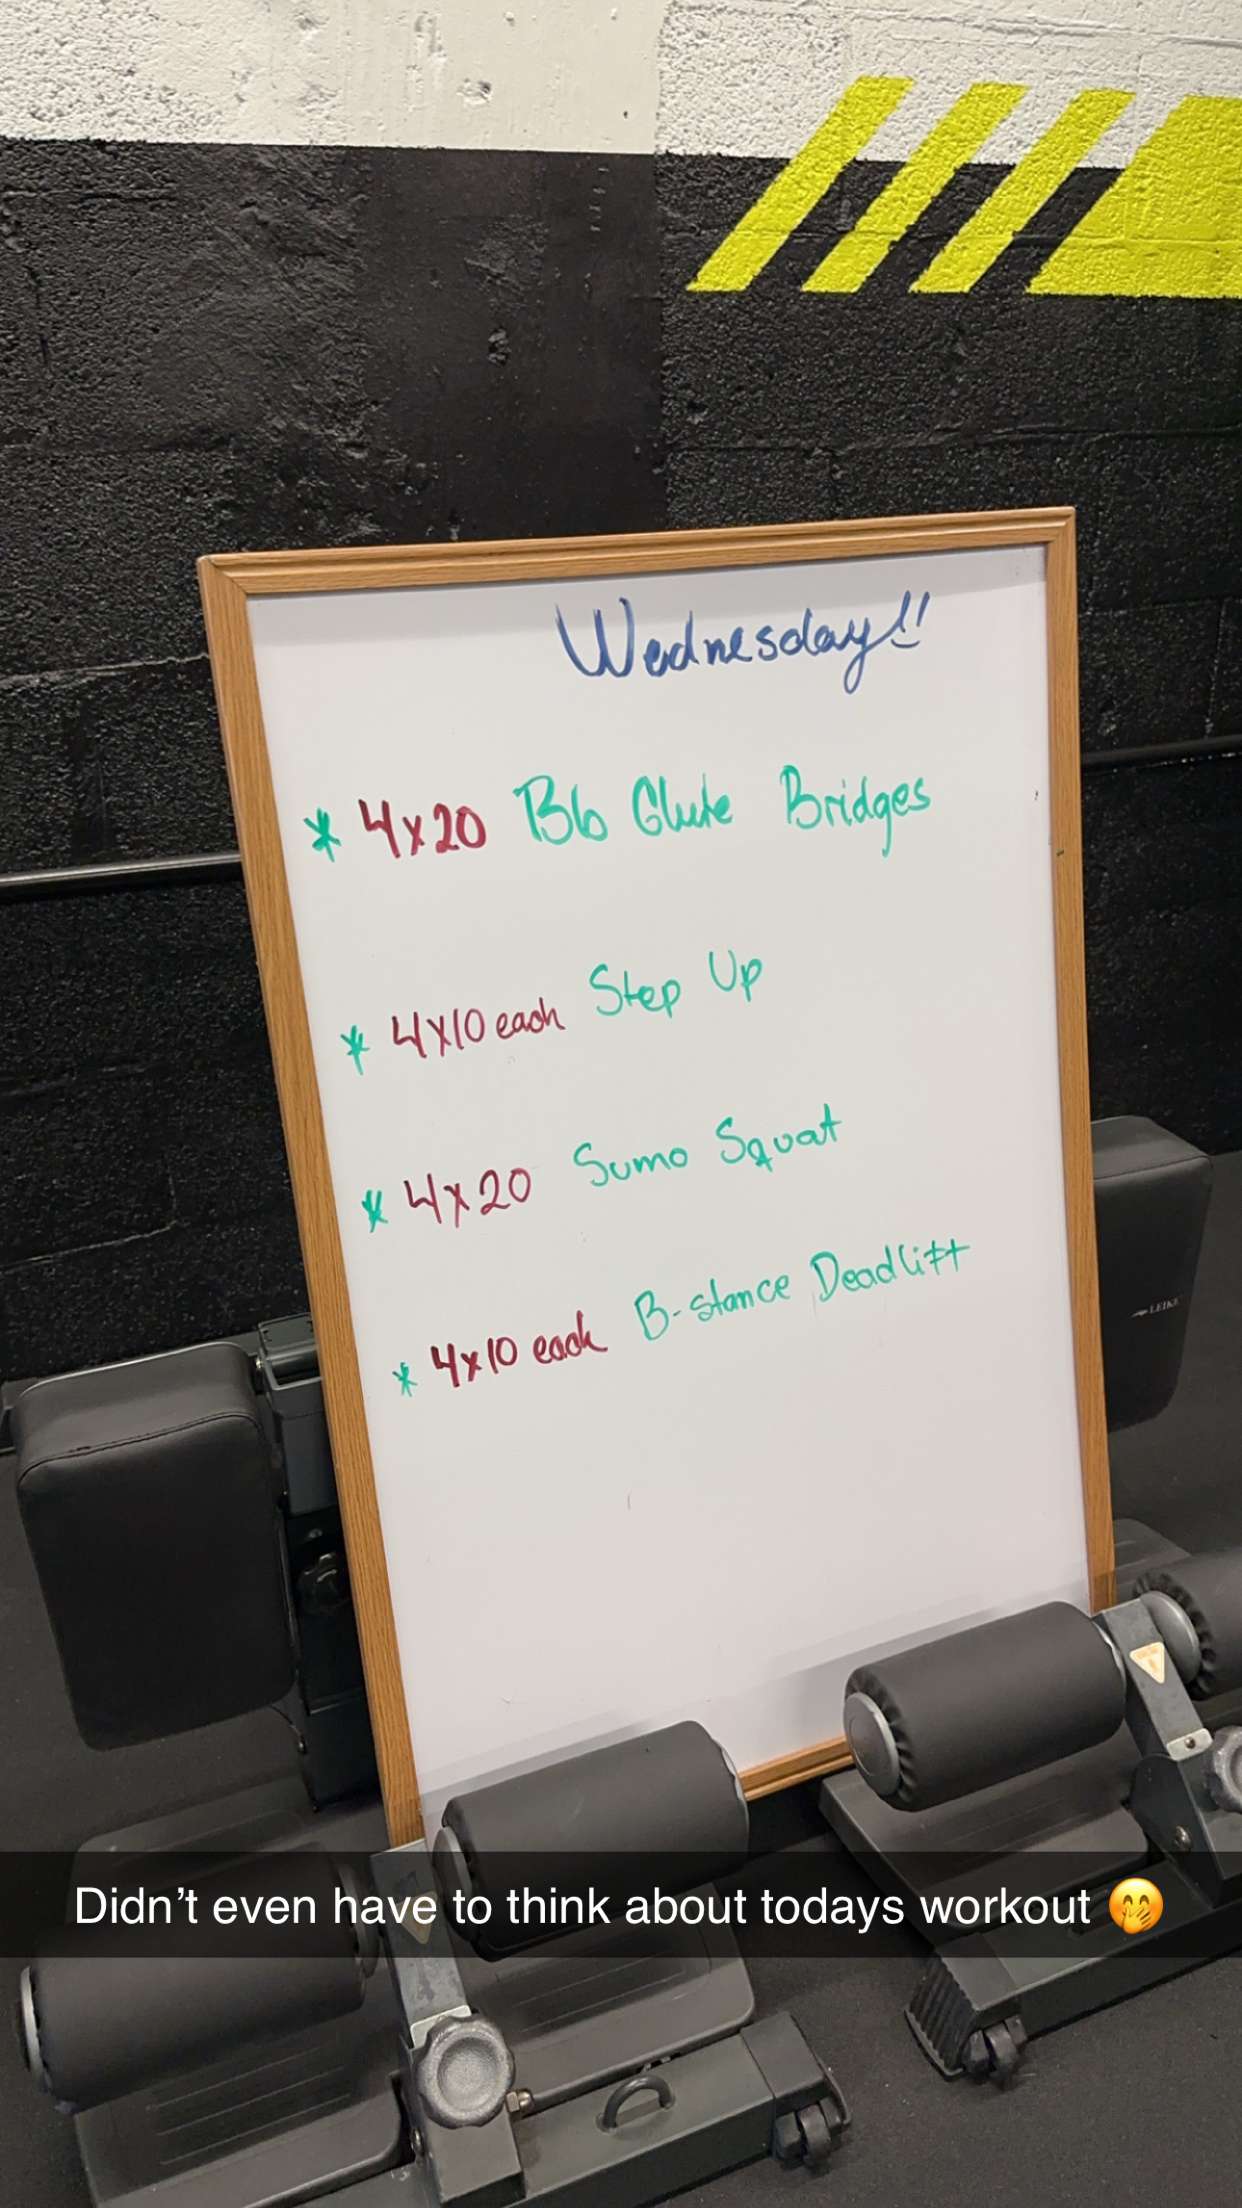 Wednesday!!
* 4x20 Bb Glute Bridges
* 4x10 each Step Up
* 4x20 Sumo Squat
* 4x10 each B-stance Deadlift
LEIKE
Didn’t even have to think about todays workout 🤭